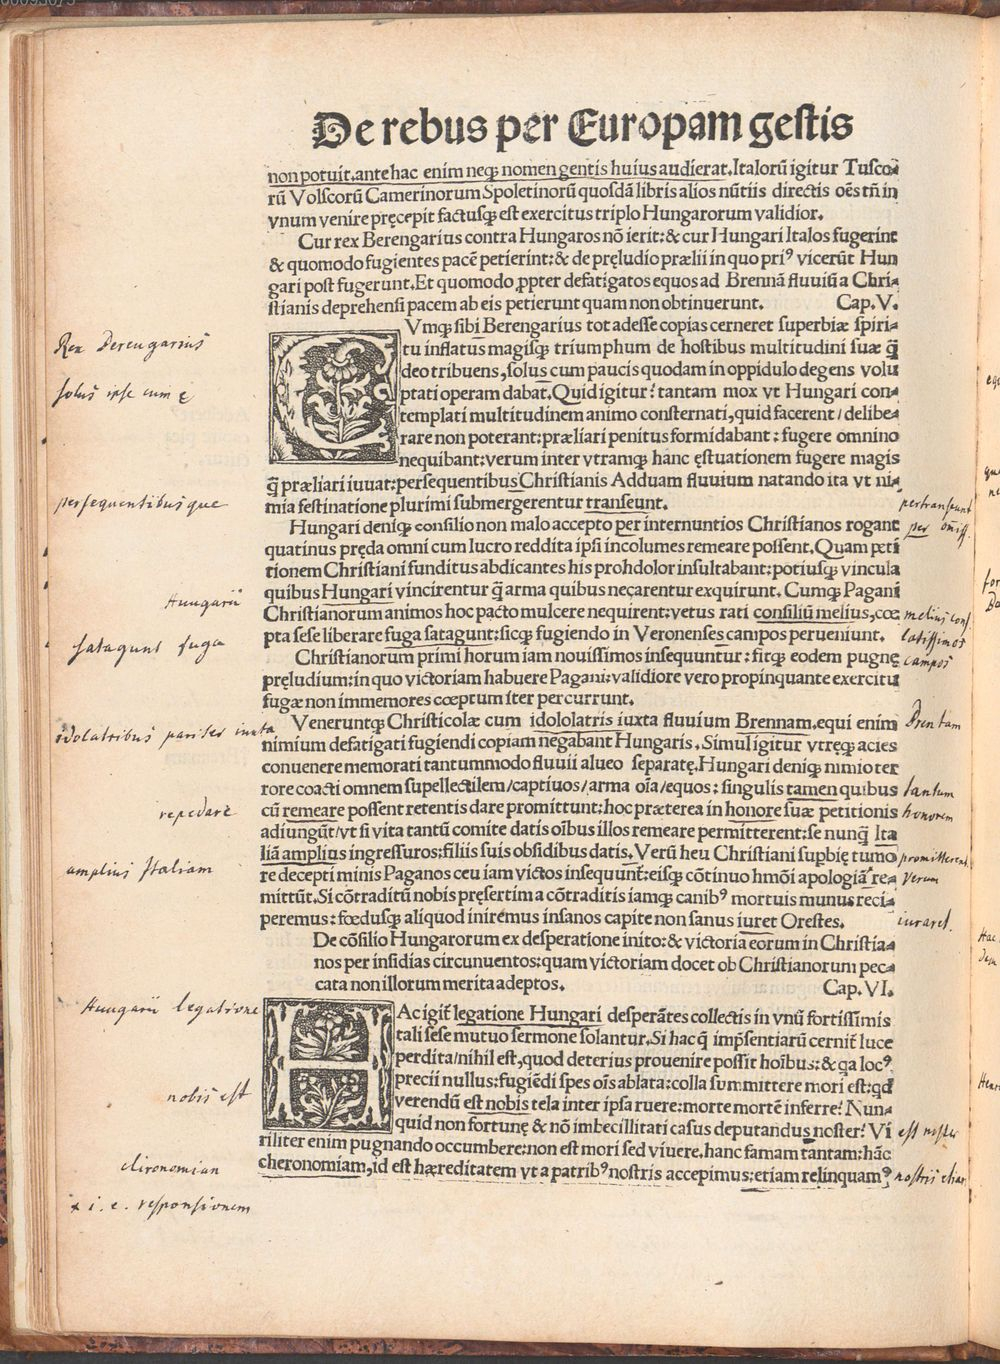 De rebus per Europam gestis
non potuit.ante hac enim neqꝫ nomen gentis huius audierat.Italorū igitur Tusco⸗
rū Volscorū Camerinorum Spoletinorū quosdā libris alios nūtiis directis oēs tñ in
vnum venire pręcepit factusqꝫ est exercitus triplo Hungarorum validior.
Cur rex Berengarius contra Hungaros nō ierit:& cur Hungari Italos fugerint
& quomodo fugientes pacē petierint:& de pręludio prælii in quo priꝰ vicerūt Hun
gari post fugerunt.Et quomodo ꝓpter defatigatos equos ad Brennā fluuiū a Chri⸗
stianis deprehensi pacem ab eis petierunt quam non obtinuerunt. Cap.V.
CVmqꝫ sibi Berengarius tot adesse copias cerneret superbiæ spiri⸗
tu inflatus magisqꝫ triumphum de hostibus multitudini suæ q̄
deo tribuens,solus cum paucis quodam in oppidulo degens volu
ptati operam dabat.Quid igitur? tantam mox vt Hungari con⸗
templati multitudinem animo consternati,quid facerent/delibe⸗
rare non poterant:præliari penitus formidabant:fugere omnino
nequibant:verum inter vtramqꝫ hanc ęstuationem fugere magis
q̄ præliari iuuat:persequentibus Christianis Adduam fluuium natando ita vt ni⸗
mia festinatione plurimi submergerentur transeunt.
Hungari deniqꝫ consilio non malo accepto per internuntios Christianos rogant
quatinus pręda omni cum lucro reddita ipsi incolumes remeare possent.Quam peti
tionem Christiani funditus abdicantes his prohdolor insultabant:potiusqꝫ vincula
quibus Hungari vincirentur q̄ arma quibus neçarentur exquirunt.Cumqꝫ Pagani
Christianorum animos hoc pacto mulcere nequirent:vetus rati consiliū melius,cœ
pta sese liberare fuga satagunt:sicqꝫ fugiendo in Veronenses campos perueniunt.
Christianorum primi horum iam nouissimos insequuntur:fitqꝫ eodem pugnę
pręludium:in quo victoriam habuere Pagani:validiore vero propinquante exercitu
fugæ non immemores cœptum iter percurrunt.
Veneruntqꝫ Christicolæ cum idololatris iuxta fluuium Brennam.equi enim
nimium defatigati fugiendi copiam negabant Hungaris.Simul igitur vtręqꝫ acies
conuenere memorati tantummodo fluuii alueo separatę.Hungari deniqꝫ nimio ter
rore coacti omnem supellectilem/captiuos/arma oīa/equos:singulis tamen quibus
cū remeare possent retentis dare promittunt:hoc præterea in honore suæ petitionis
adiungūt/vt si vita tantū comite datis oībus illos remeare permitterent:se nunq̄ Ita
liā amplius ingressuros:filiis suis obsidibus datis.Verū heu Christiani supbię tumo
re decepti minis Paganos ceu iam victos insequunt̄:eisqꝫ cōtinuo hmōi apologiā re⸗
mittūt.Si cōtraditū nobis pręsertim a cōtraditis iamqꝫ canibꝰ mortuis munus reci⸗
peremus:fœdusqꝫ aliquod iniremus insanos capite non sanus iuret Orestes.
De cōsilio Hungarorum ex desperatione inito:& victoria eorum in Christia⸗
nos per insidias circunuentos:quam victoriam docet ob Christianorum pec⸗
cata non illorum merita adeptos. Cap.VI.
HAc igit̄ legatione Hungari desperātes collectis in vnū fortissimis
tali sese mutuo sermone solantur.Si hac q̄ imp̄sentiarū cernit̄ luce
perdita/nihil est,quod deterius prouenire possit hoībus:& qa locꝰ
precii nullus:fugiēdi spes oīs ablata:colla summittere mori est:qd
verendū est nobis tela inter ipsa ruere:morte mortē inferre? Nun⸗
quid non fortunę & nō imbecillitati casus deputandus noster? Vi
riliter enim pugnando occumbere:non est mori sed viuere,hanc famam tantam:hāc
cheronomiam,id est hæreditatem vt a patribꝰ nostris accepimus:etiam relinquamꝰ
Rex Berengarius
solus ipse cum
persequentibusque
Hungarii
satagunt fuga
idolatribus pariter iuxta
repedare
amplius Italiam
Hungarii legatione
nobis est
clironomian
x i. e. responsionem
pertranseunt
per
melius cons.
latissimos
campos
Brentam
tantum
honorem
promitterent
verum
iuraret.
est noster
nostris etiam